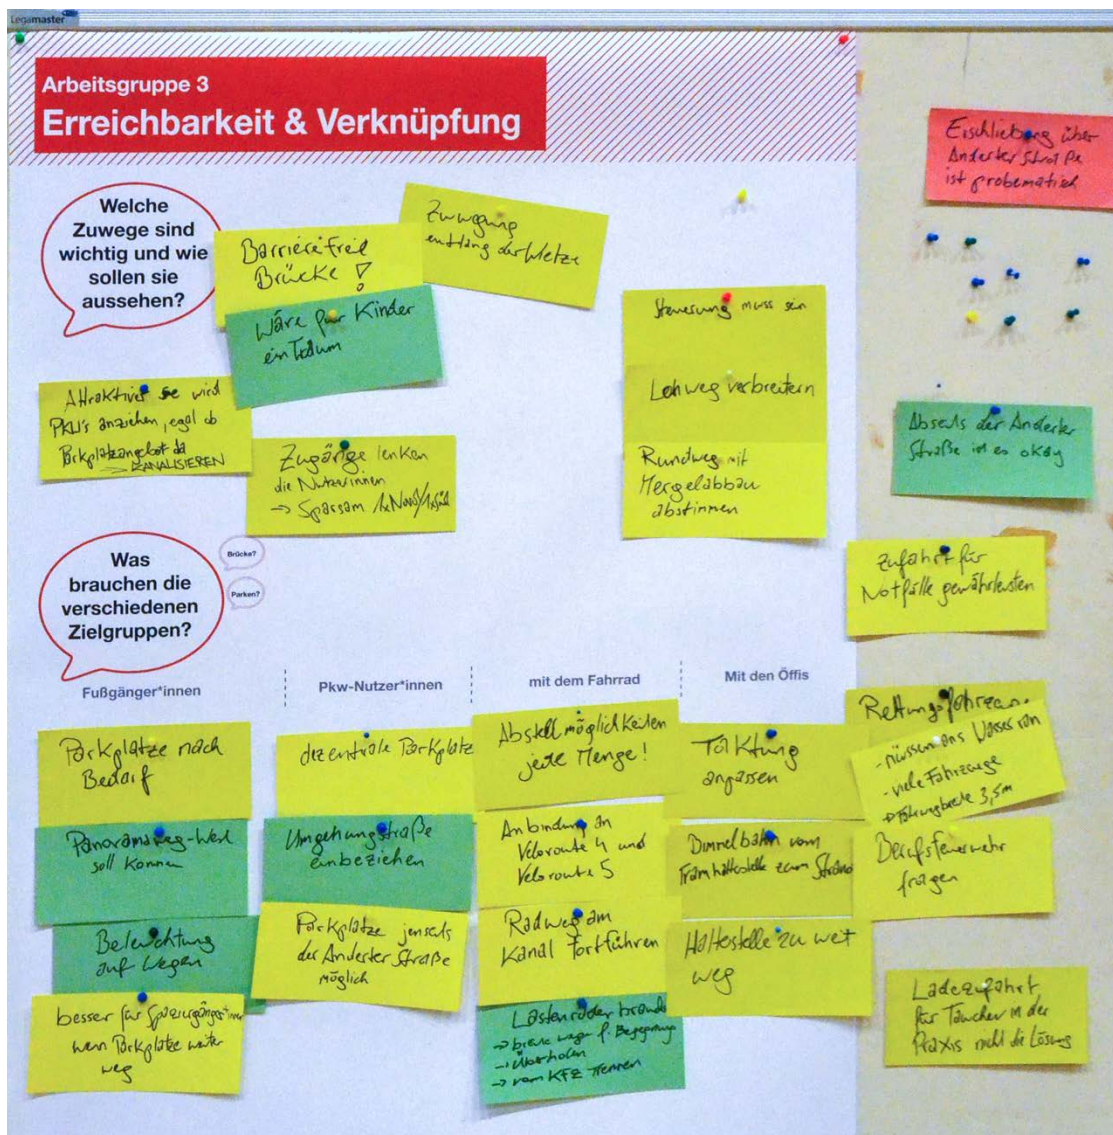 Legamaster
Arbeitsgruppe 3
Erreichbarkeit & Verknüpfung
Welche
Zuwege sind
wichtig und wie
sollen sie
aussehen?
Barrierefreie
Brücke!
Zuwegung
entlang der Wietze
Wäre für Kinder
ein Traum
Attraktiver See wird
PKW's anziehen, egal ob
Parkplatzangebot da
→ KANALISIEREN
Zugänge lenken
die Nutzerinnen
→ Sparsam 1x Nord/1x Süd
Steuerung muss sein
Lohweg verbreitern
Rundweg mit
Mergelabbau
abstimmen
Erschließung über
Anderter Straße
ist probematisch
Abseits der Anderter
Straße ist es okay
Was
brauchen die
verschiedenen
Zielgruppen?
Brücke?
Parken?
Zufahrt für
Notfälle gewährleisten
Fußgänger*innen
Pkw-Nutzer*innen
mit dem Fahrrad
Mit den Öffis
Parkplätze nach
Bedarf
Panoramaweg-West
soll kommen
Beleuchtung
auf Wegen
besser für Spaziergänger*innen
wenn Parkplätze weiter
weg
dezentrale Parkplätze
Umgehungstraße
einbeziehen
Parkplätze jenseits
der Anderter Straße
möglich
Abstellmöglichkeiten
jede Menge!
Anbindung an
Veloroute 4 und
Veloroute 5
Radweg am
Kanal fortführen
Lastenräder brauchen
→ breite Wege f. Begegnung
→ überholen
→ vom KFZ trennen
Taktung
anpassen
Bimmelbahn vom
Tramhaltestelle zum Strand
Haltestelle zu weit
weg
Rettungsfahrzeuge
- müssen ans Wasser ran
- viele Fahrzeuge
→ Fahrwegbreite 3,5m
Berufsfeuerwehr
fragen
Ladezufahrt
für Taucher in der
Praxis nicht die Lösung